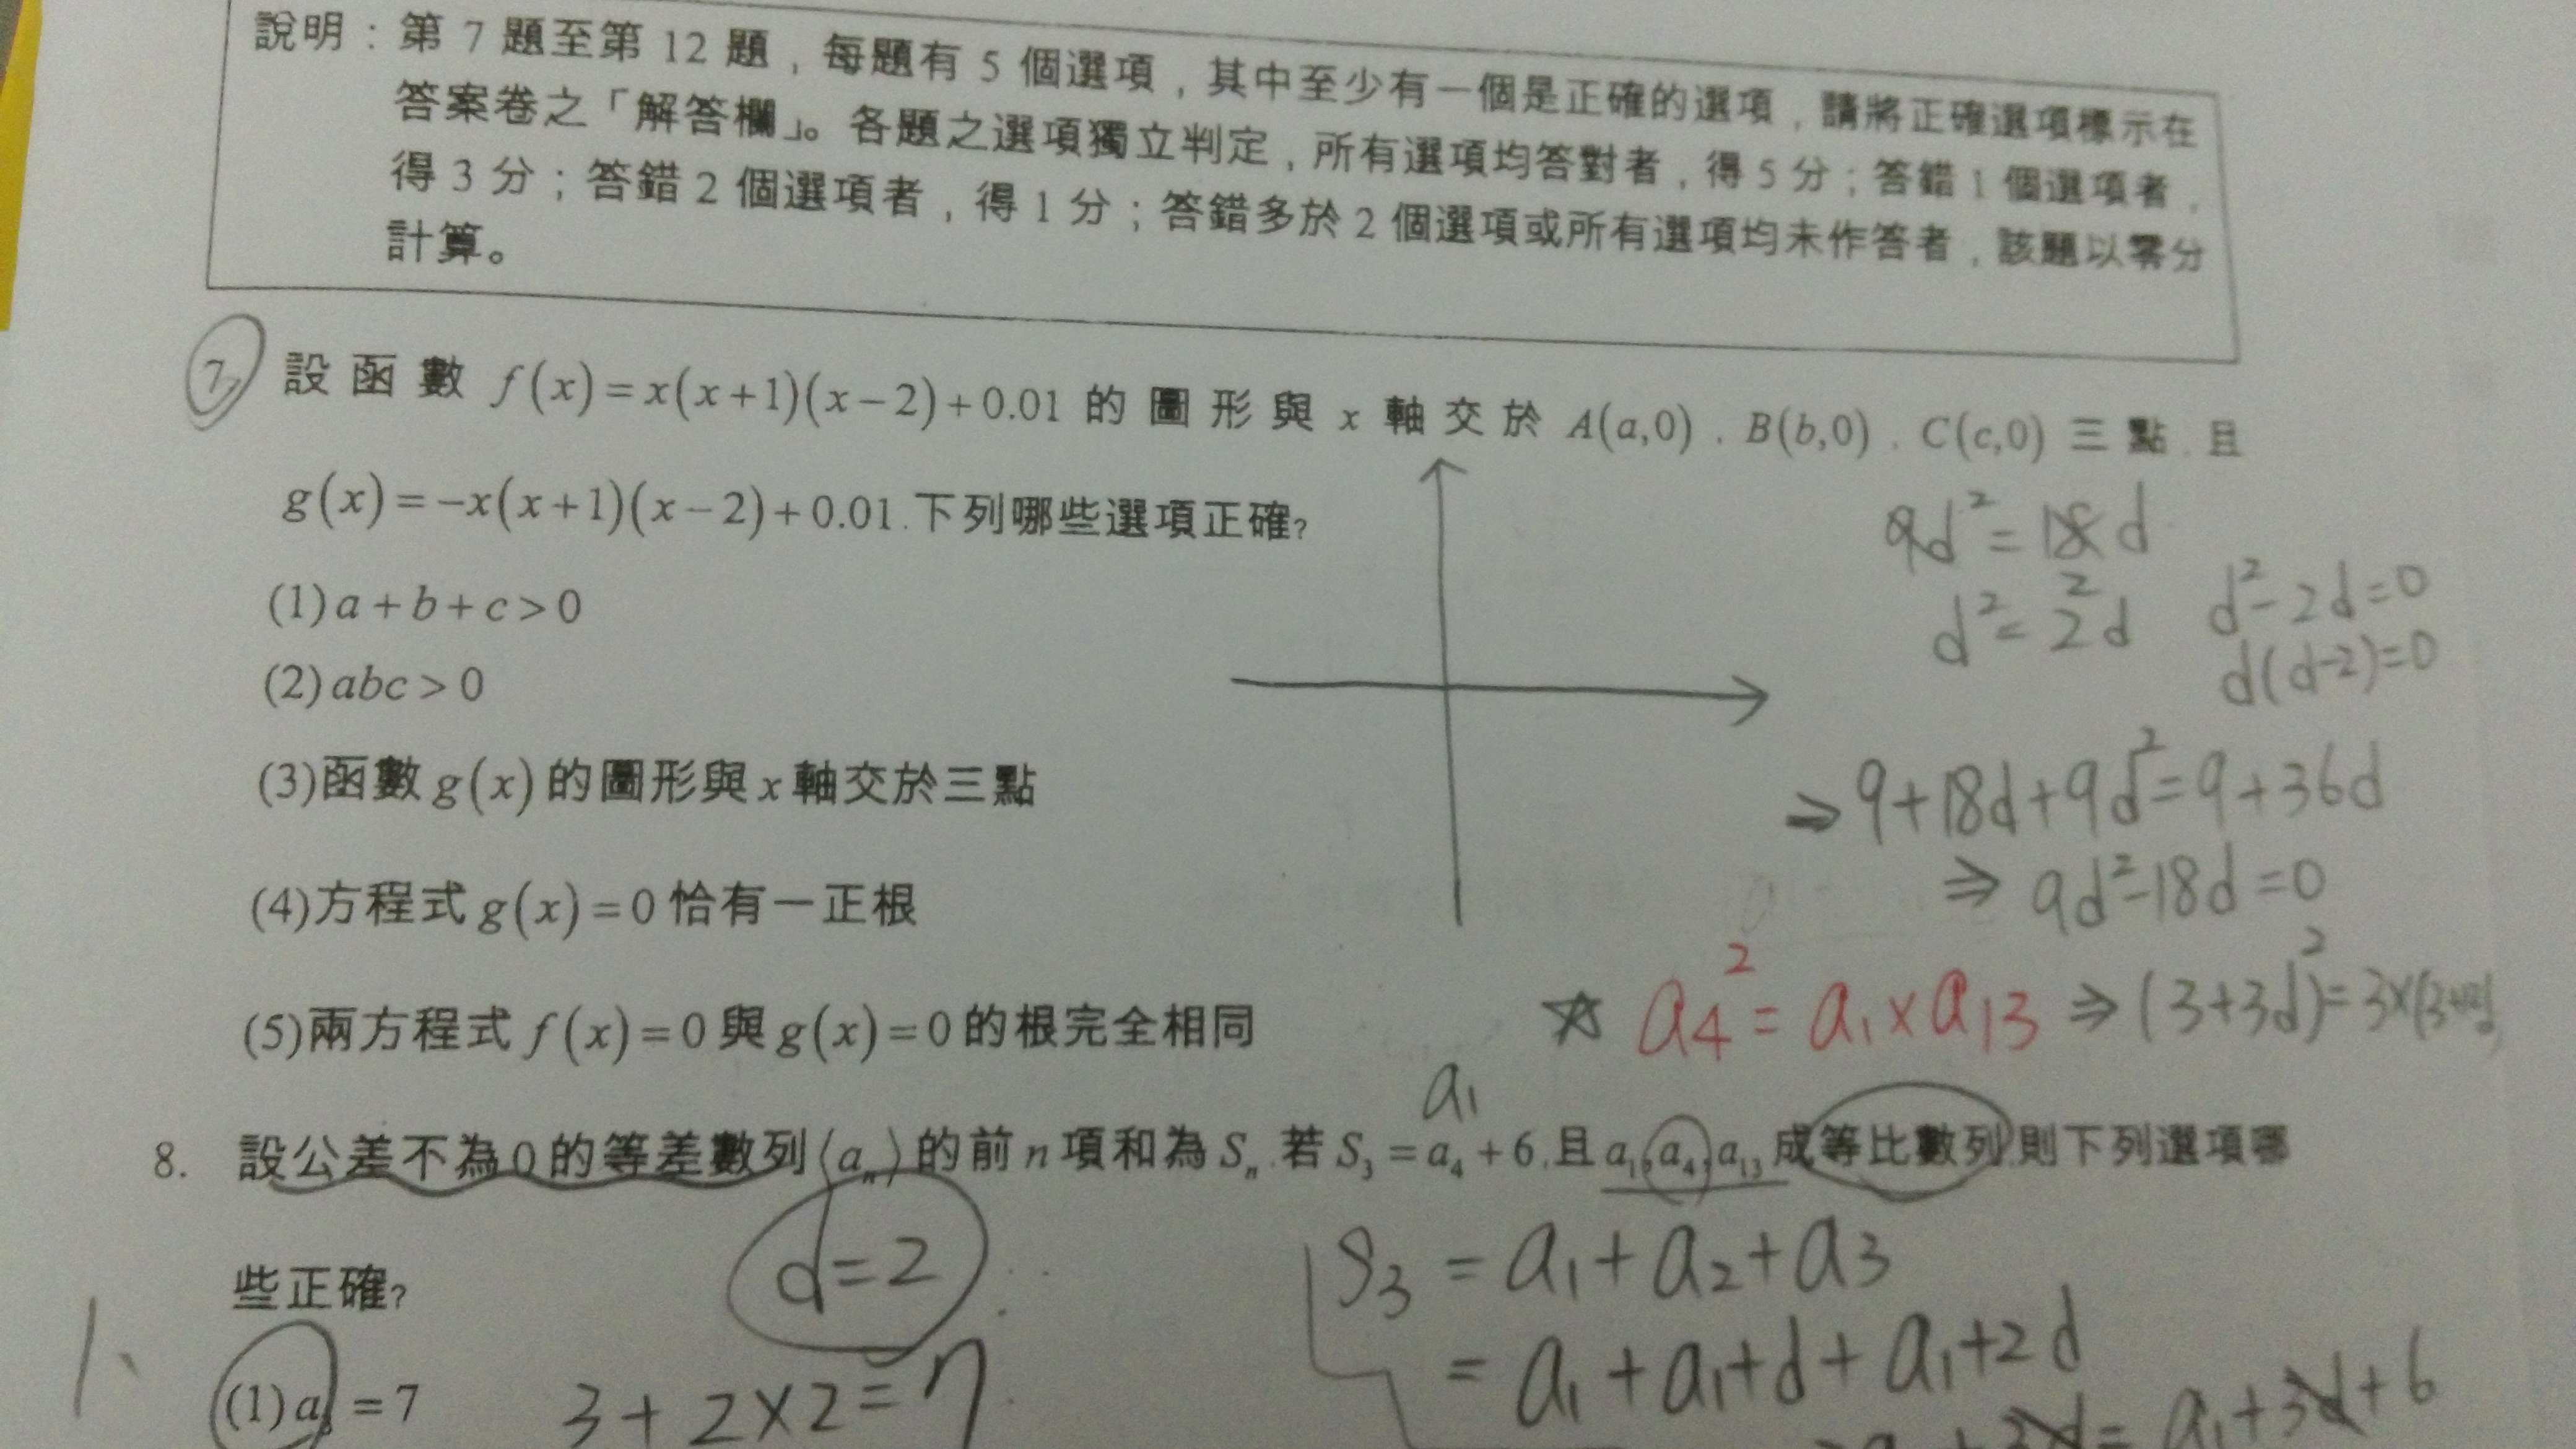 說明：第 7 題至第 12 題，每題有 5 個選項，其中至少有一個是正確的選項，請將正確選項標示在
答案卷之「解答欄」。各題之選項獨立判定，所有選項均答對者，得 5 分；答錯 1 個選項者，
得 3 分；答錯 2 個選項者，得 1 分；答錯多於 2 個選項或所有選項均未作答者，該題以零分
計算。
7. 設函數 f(x)=x(x+1)(x-2)+0.01 的圖形與 x 軸交於 A(a,0)、B(b,0)、C(c,0) 三點，且
g(x)=-x(x+1)(x-2)+0.01.下列哪些選項正確?
(1) a+b+c>0
(2) abc>0
(3)函數 g(x) 的圖形與 x 軸交於三點
(4)方程式 g(x)=0 恰有一正根
(5)兩方程式 f(x)=0 與 g(x)=0 的根完全相同
9d²=18d
d²=2d
d²-2d=0
d(d-2)=0
⇒9+18d+9d²=9+36d
⇒ 9d²-18d=0
☆ a4²=a1×a13 ⇒(3+3d)²=3×(3+12d)
a1
8. 設公差不為 0 的等差數列⟨aₙ⟩的前 n 項和為 Sₙ.若 S₃=a₄+6,且 a₁,a₄,a₁₃成等比數列,則下列選項哪
些正確?
d=2
S3 = a1+a2+a3
= a1+a1+d+a1+2d
(1) a₃=7
3+2×2=7
= a1+3d+6